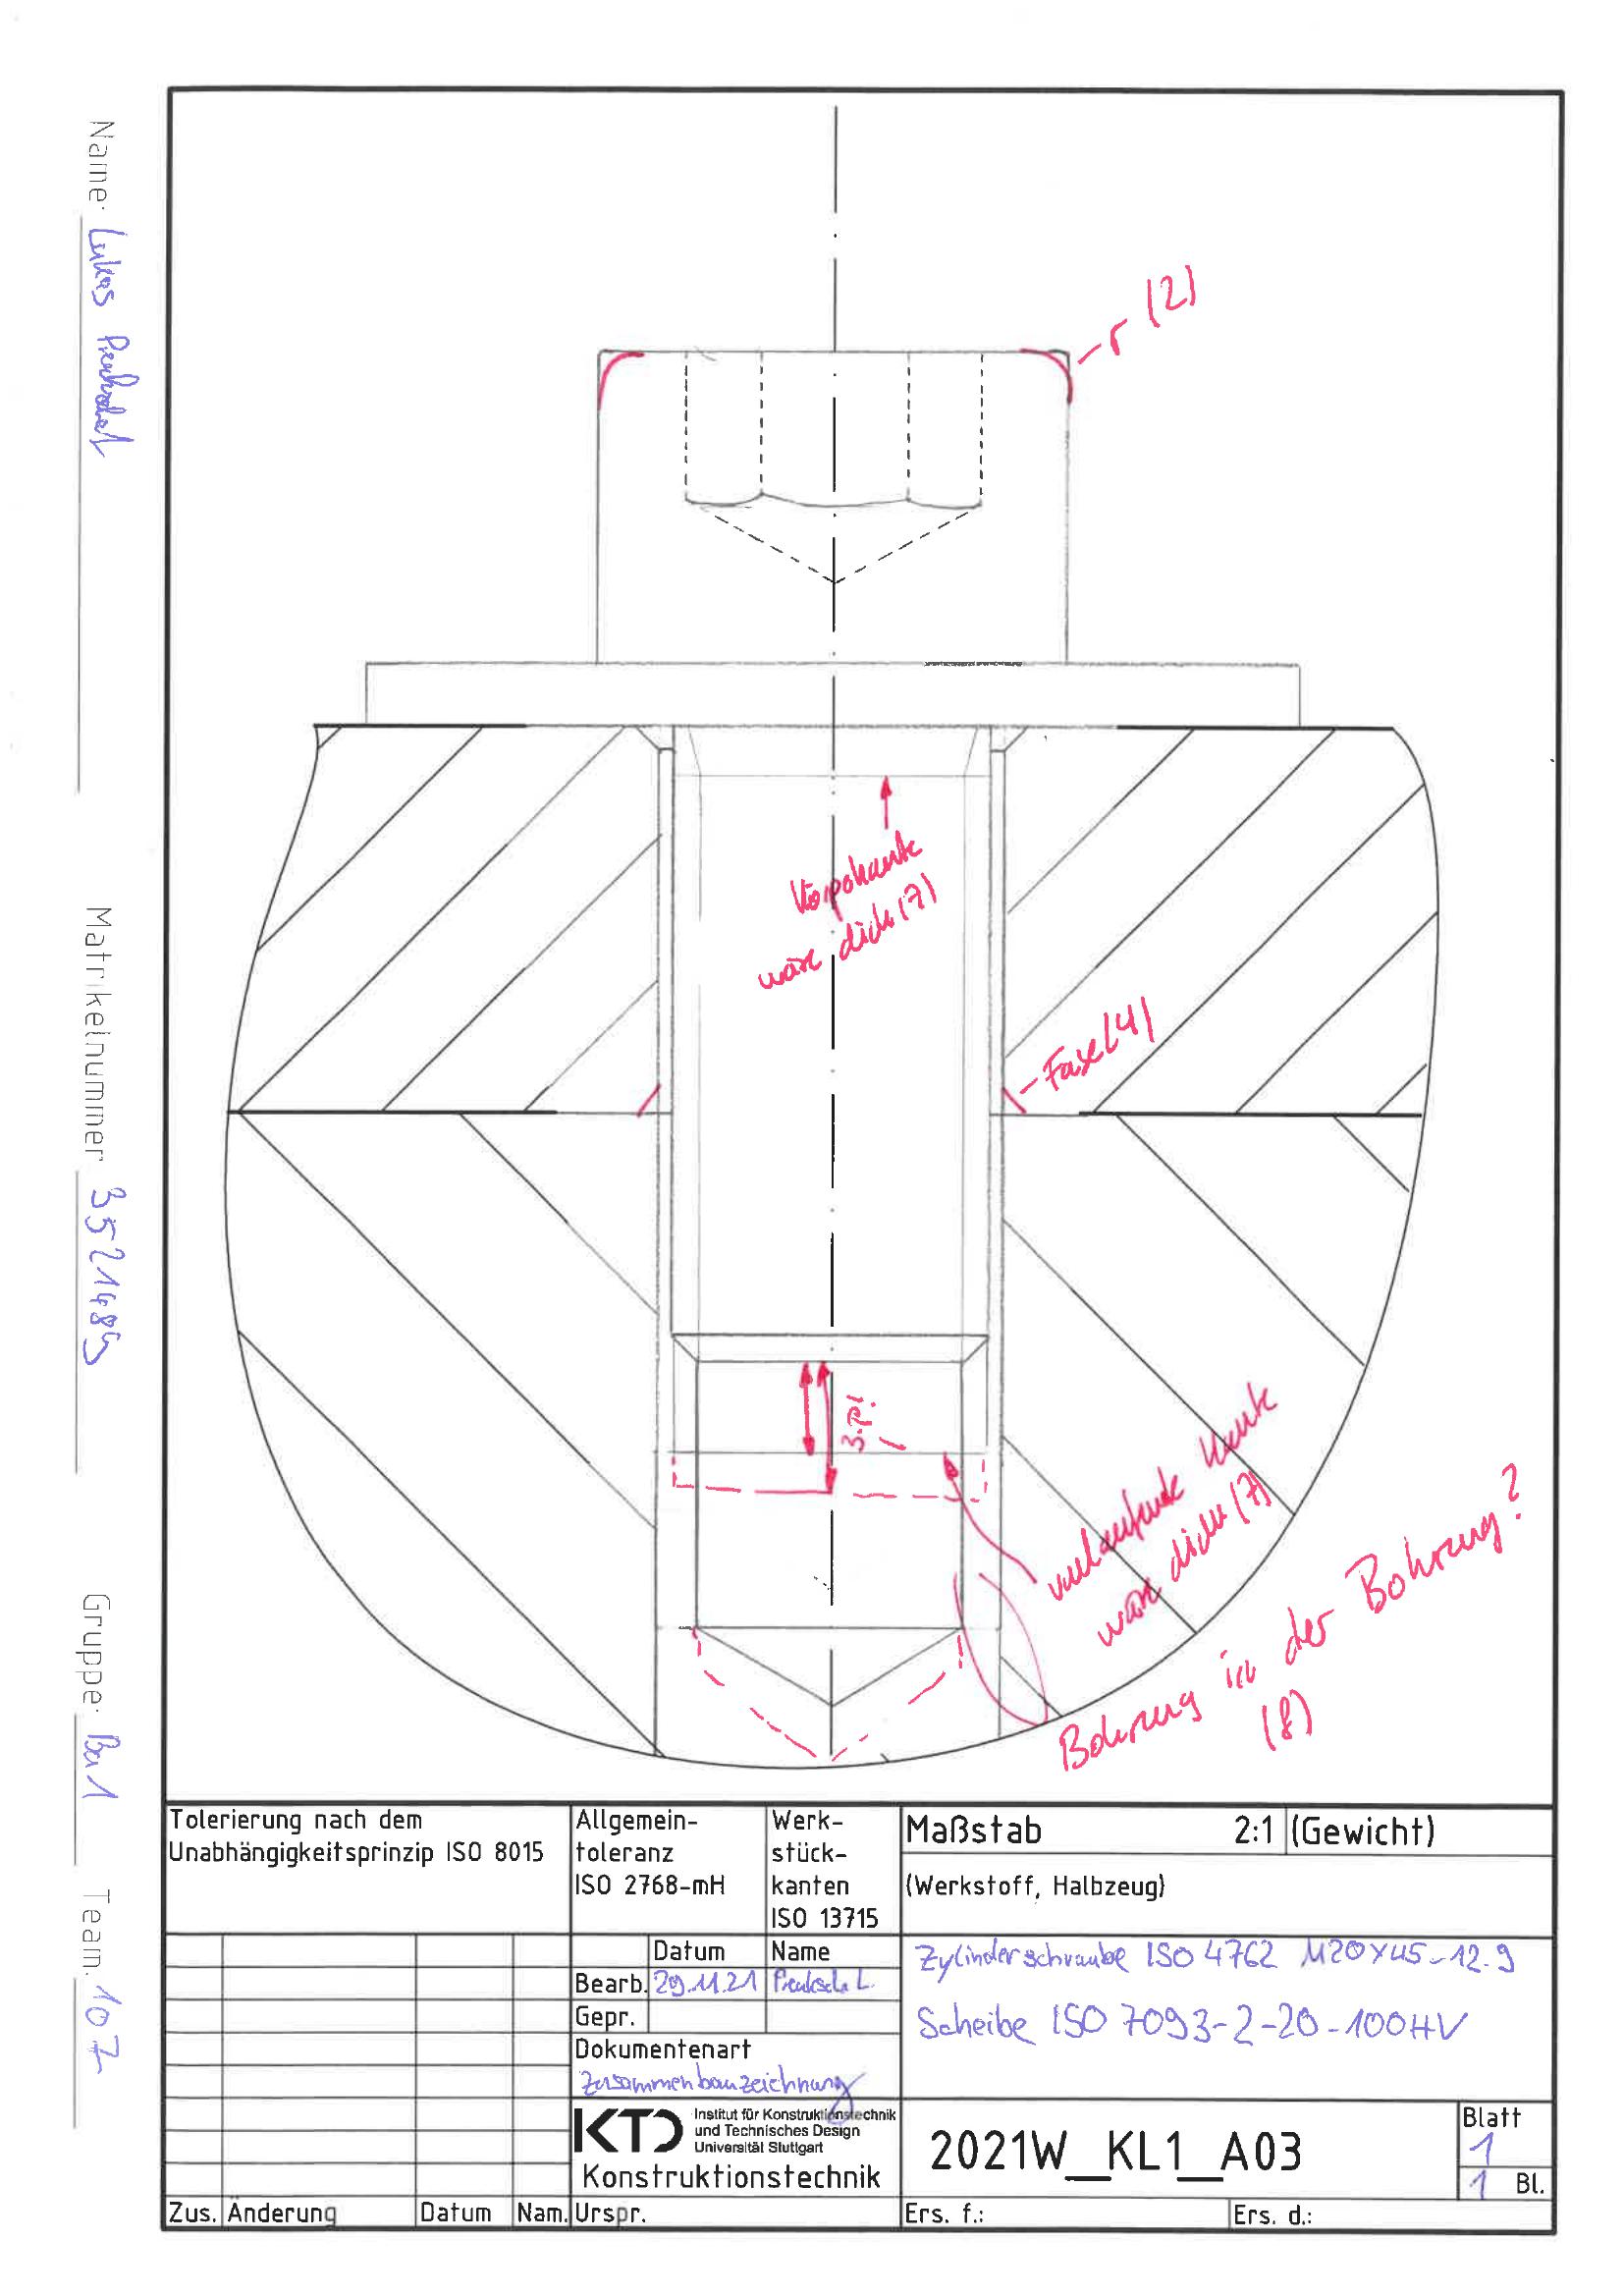 Name: Lukas
Matrikelnummer 3521485
Gruppe: Bau1
Team: 107
- r (2)
wäre dick (7)
- Fase (4)
3·P!
Kante
wäre dick (7)
Bohrung in der Bohrung?
(8)
Tolerierung nach dem
Unabhängigkeitsprinzip ISO 8015
Allgemein-
toleranz
ISO 2768-mH
Werk-
stück-
kanten
ISO 13715
Maßstab 2:1 (Gewicht)
(Werkstoff, Halbzeug)
Datum Name
Bearb. 29.11.21
Gepr.
Dokumentenart
Zusammenbauzeichnung
Zylinderschraube ISO 4762 M20x45-12.9
Scheibe ISO 7093-2-20-100HV
Institut für Konstruktionstechnik
und Technisches Design
Universität Stuttgart
Konstruktionstechnik
2021W_KL1_A03
Blatt
1
1 Bl.
Zus. Änderung Datum Nam. Urspr. Ers. f.: Ers. d.: